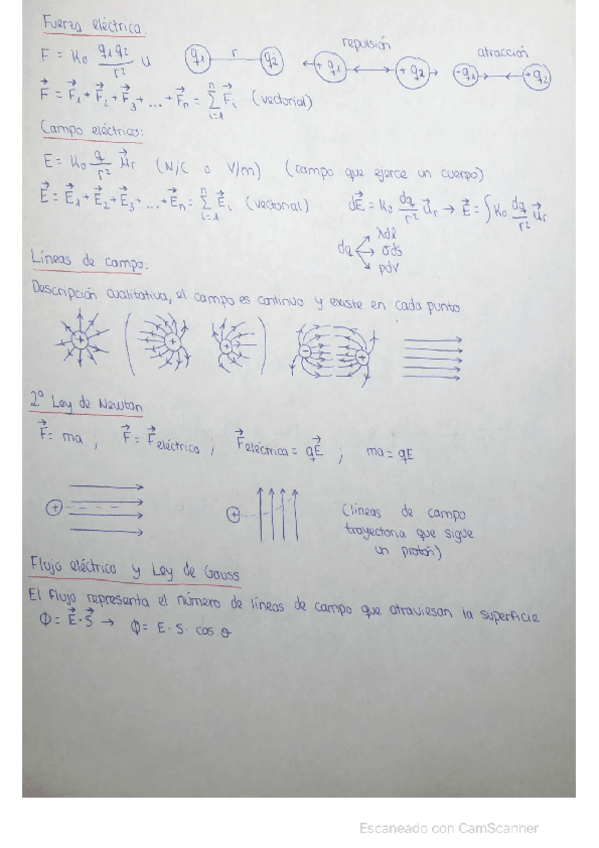 Fuerza eléctrica:
F = K₀ q₁q₂/r² u   q₁ r q₂   repulsión +q₁ +q₂   atracción -q₁ +q₂
F⃗ = F⃗₁ + F⃗₂ + F⃗₃ + ... + F⃗ₙ = Σⁿᵢ₌₁ F⃗ᵢ (vectorial)
Campo eléctrico:
E = K₀ q/r² u⃗r (N/C o V/m) (campo que ejerce un cuerpo)
E⃗ = E⃗₁ + E⃗₂ + E⃗₃ + ... + E⃗ₙ = Σⁿᵢ₌₁ E⃗ᵢ (vectorial)   dE⃗ = K₀ dq/r² u⃗r → E⃗ = ∫ K₀ dq/r² u⃗r
dq λdl
σds
ρdV
Líneas de campo.
Descripción cualitativa, el campo es continuo y existe en cada punto
+ + + - +
2ª Ley de Newton
F⃗ = ma , F⃗ = F⃗eléctrica ; F⃗eléctrica = qE⃗ ; ma = qE
+ + (líneas de campo
trayectoria que sigue
un protón)
Flujo eléctrico y Ley de Gauss
El flujo representa el número de líneas de campo que atraviesan la superficie
Φ = E⃗ · S⃗ → Φ = E · S · cos θ
Escaneado con CamScanner